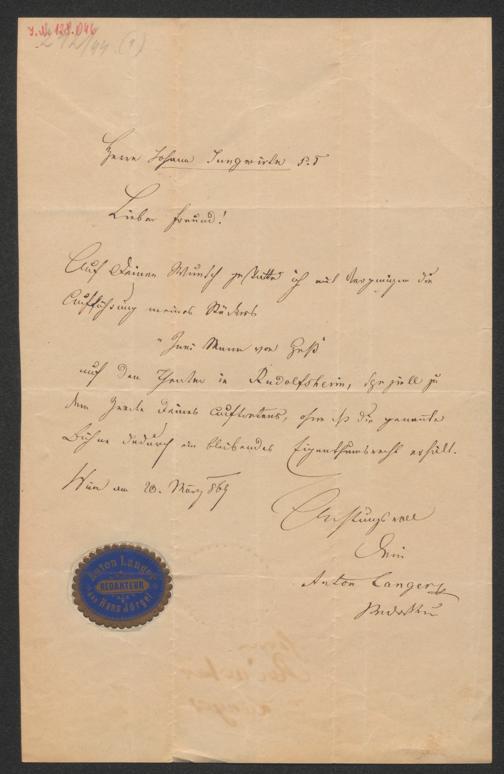 I.N. 128.046
Herrn Johann Jungwirth
Lieber Freund!
Auf Deinen Wunsch gestatte ich mit Vergnügen die
Aufführung meines Stückes
"Zwei Mann von Heß"
auf dem Theater in Rudolfsheim, speziell zu
dem Zwecke Deines Auftretens, ohne daß die genannte
Bühne dadurch ein bleibendes Eigenthumsrecht erhält.
Wien am 20. März 869
Achtungsvoll
Dein
Anton Langer
Redakteur
Anton Langer
REDAKTEUR
des Hans Jörgel